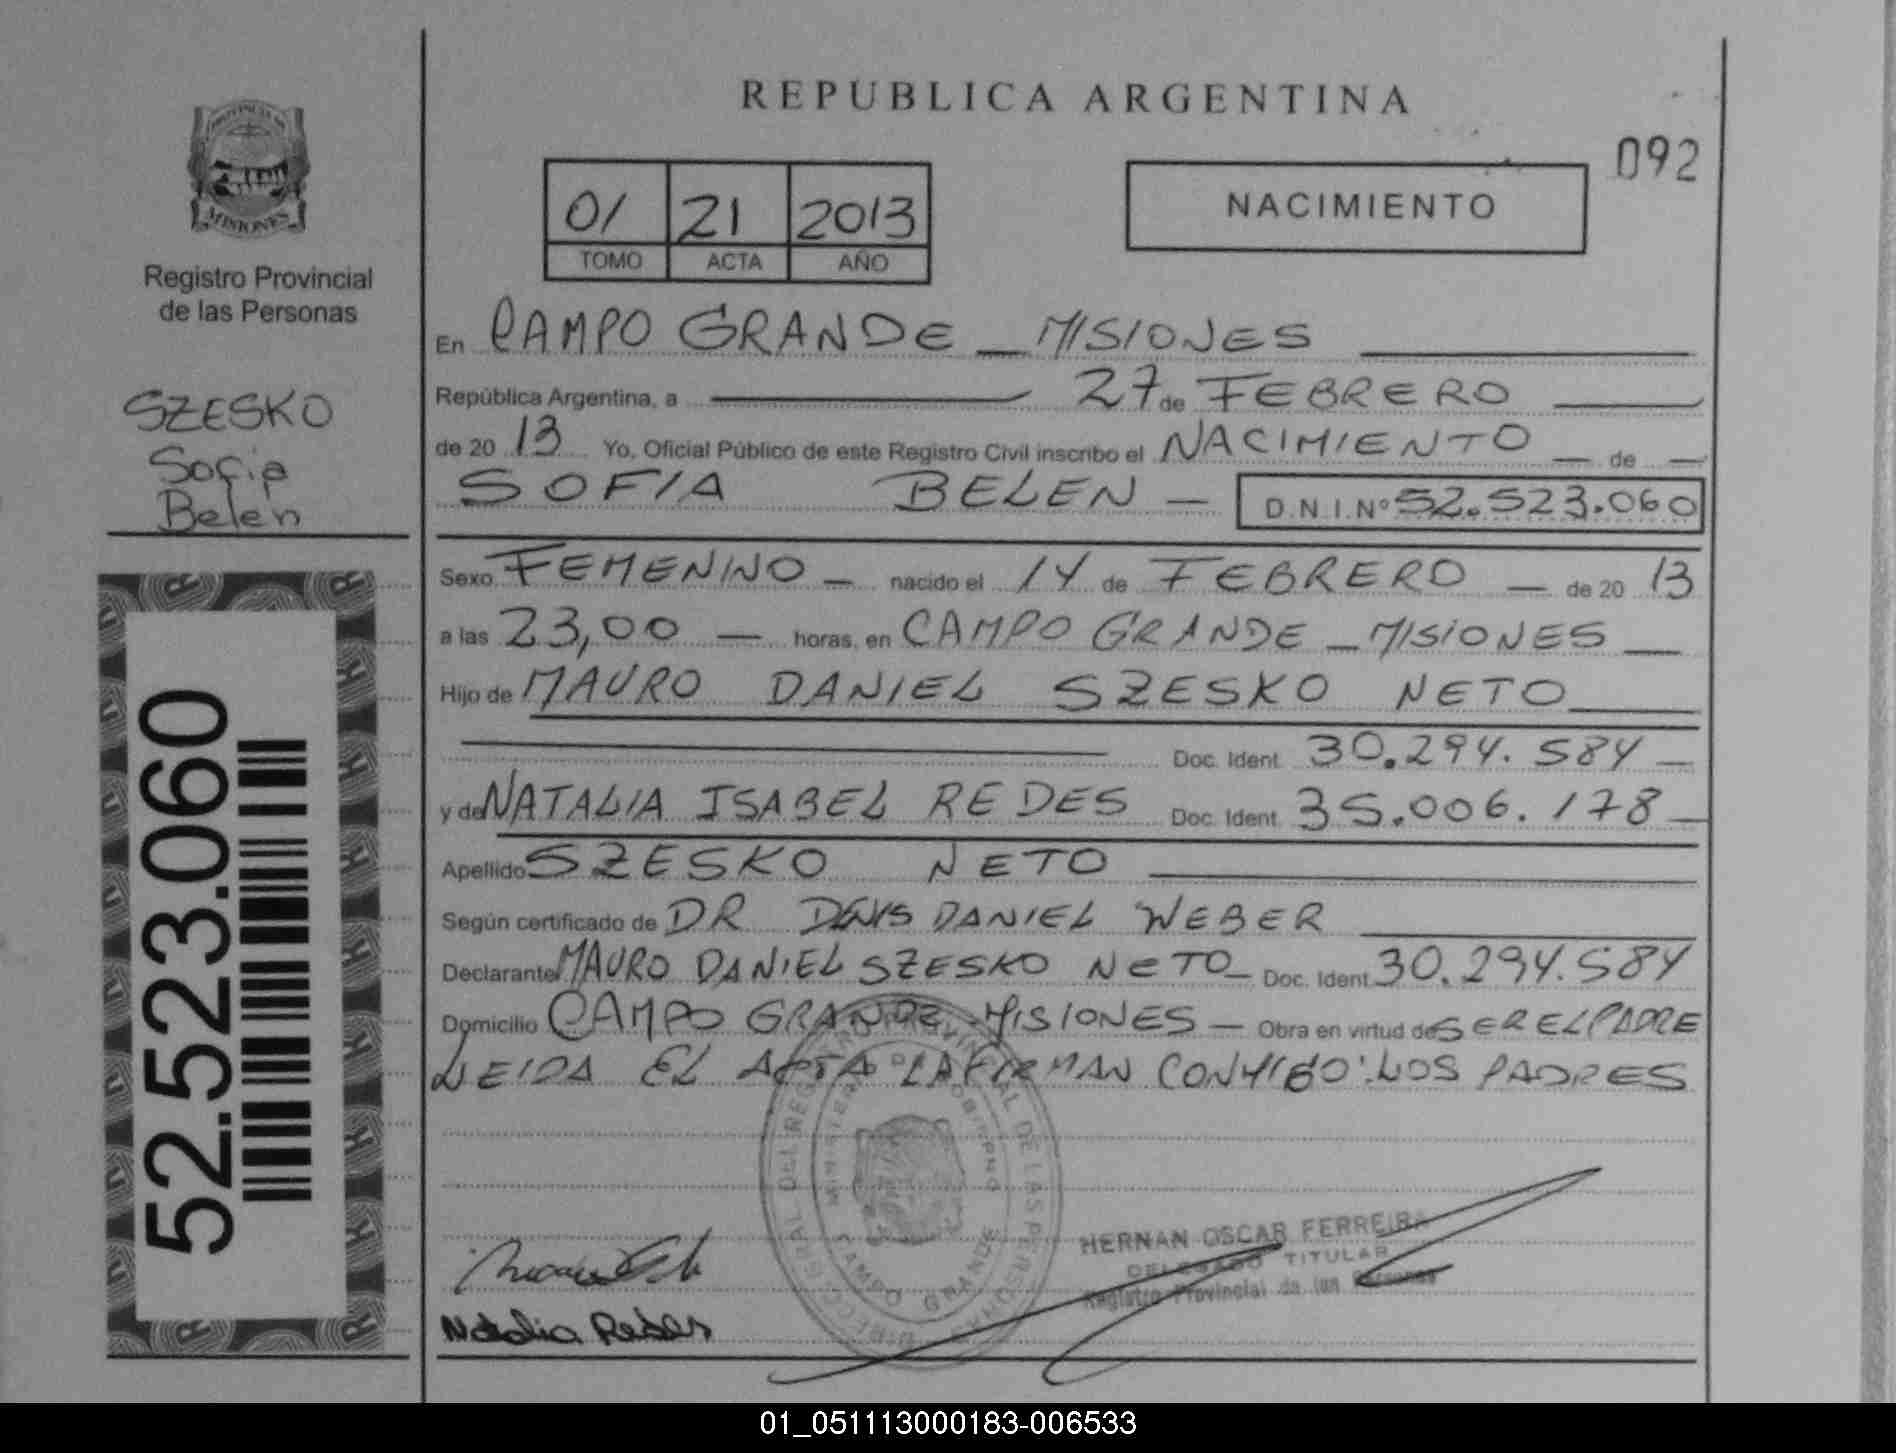 REPUBLICA ARGENTINA
092
01 21 2013
TOMO ACTA AÑO
NACIMIENTO
PROVINCIA DE
MISIONES
Registro Provincial
de las Personas
SZESKO
Sofia
Belen
52.523.060
En CAMPO GRANDE _ MISIONES
República Argentina, a 27 de FEBRERO
de 20 13 Yo, Oficial Público de este Registro Civil inscribo el NACIMIENTO _ de _
SOFIA BELEN — D.N.I.Nº 52.523.060
Sexo FEMENINO — nacido el 14 de FEBRERO — de 20 13
a las 23,00 — horas, en CAMPO GRANDE _ MISIONES
Hijo de MAURO DANIEL SZESKO NETO
Doc. Ident. 30.294.584 —
y de NATALIA ISABEL REDES Doc. Ident. 35.006.178 —
Apellido SZESKO NETO
Según certificado de DR DANIEL WEBER
Declarante MAURO DANIEL SZESKO NETO _ Doc. Ident. 30.294.584
Domicilio CAMPO GRANDE - MISIONES — Obra en virtud de SER EL PADRE
LEIDA EL ACTA LA FIRMAN CONMIGO: LOS PADRES
DIRECC. GRAL DEL REGISTRO PROVINCIAL DE LAS PERSONAS
MINISTERIO DE GOBIERNO
CAMPO GRANDE
HERNAN OSCAR FERREIRA
DELEGADO TITULAR
Registro Provincial de las Personas
Natalia Redes
01_051113000183-006533